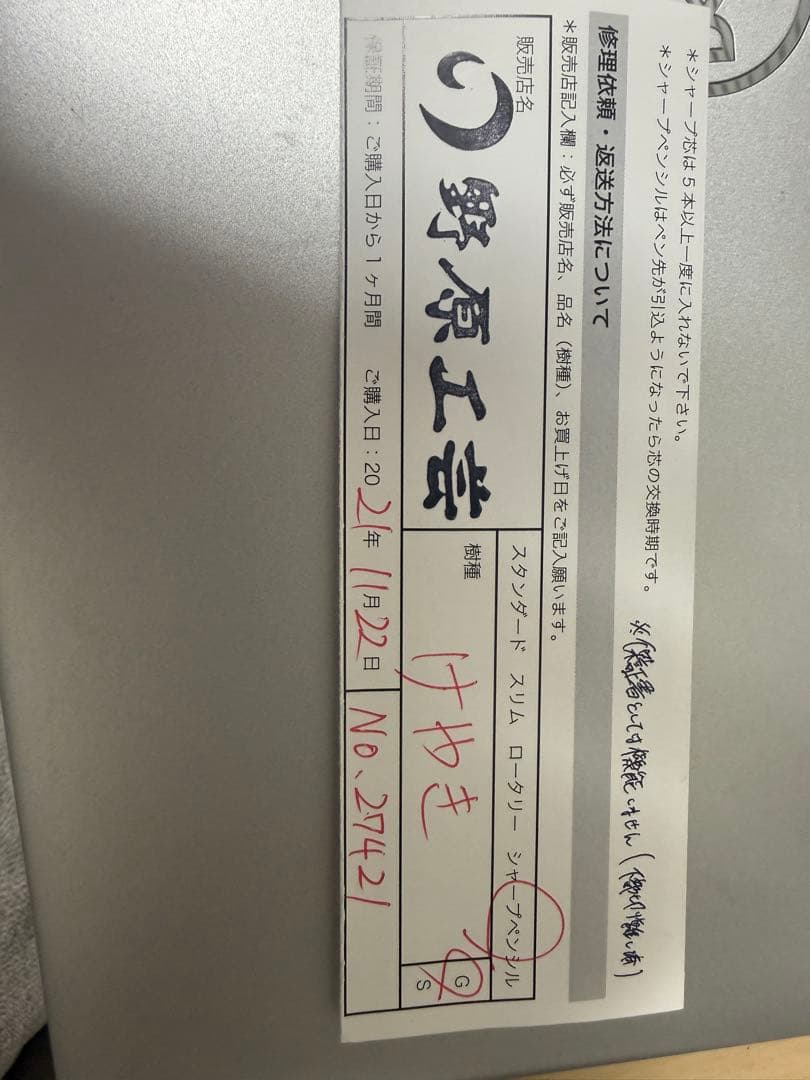 ＊シャープ芯は5本以上一度に入れないで下さい。
＊シャープペンシルはペン先が引込ようになったら芯の交換時期です。
※保証書としては機能しません
修理依頼・返送方法について
＊販売店記入欄：必ず販売店名、品名（樹種）、お買上げ日をご記入願います。
販売店名
野原工芸
スタンダード スリム ロータリー シャープペンシル
樹種
けやき
G
S
保証期間：ご購入日から1ヶ月間 ご購入日：2021年11月22日
No.27421